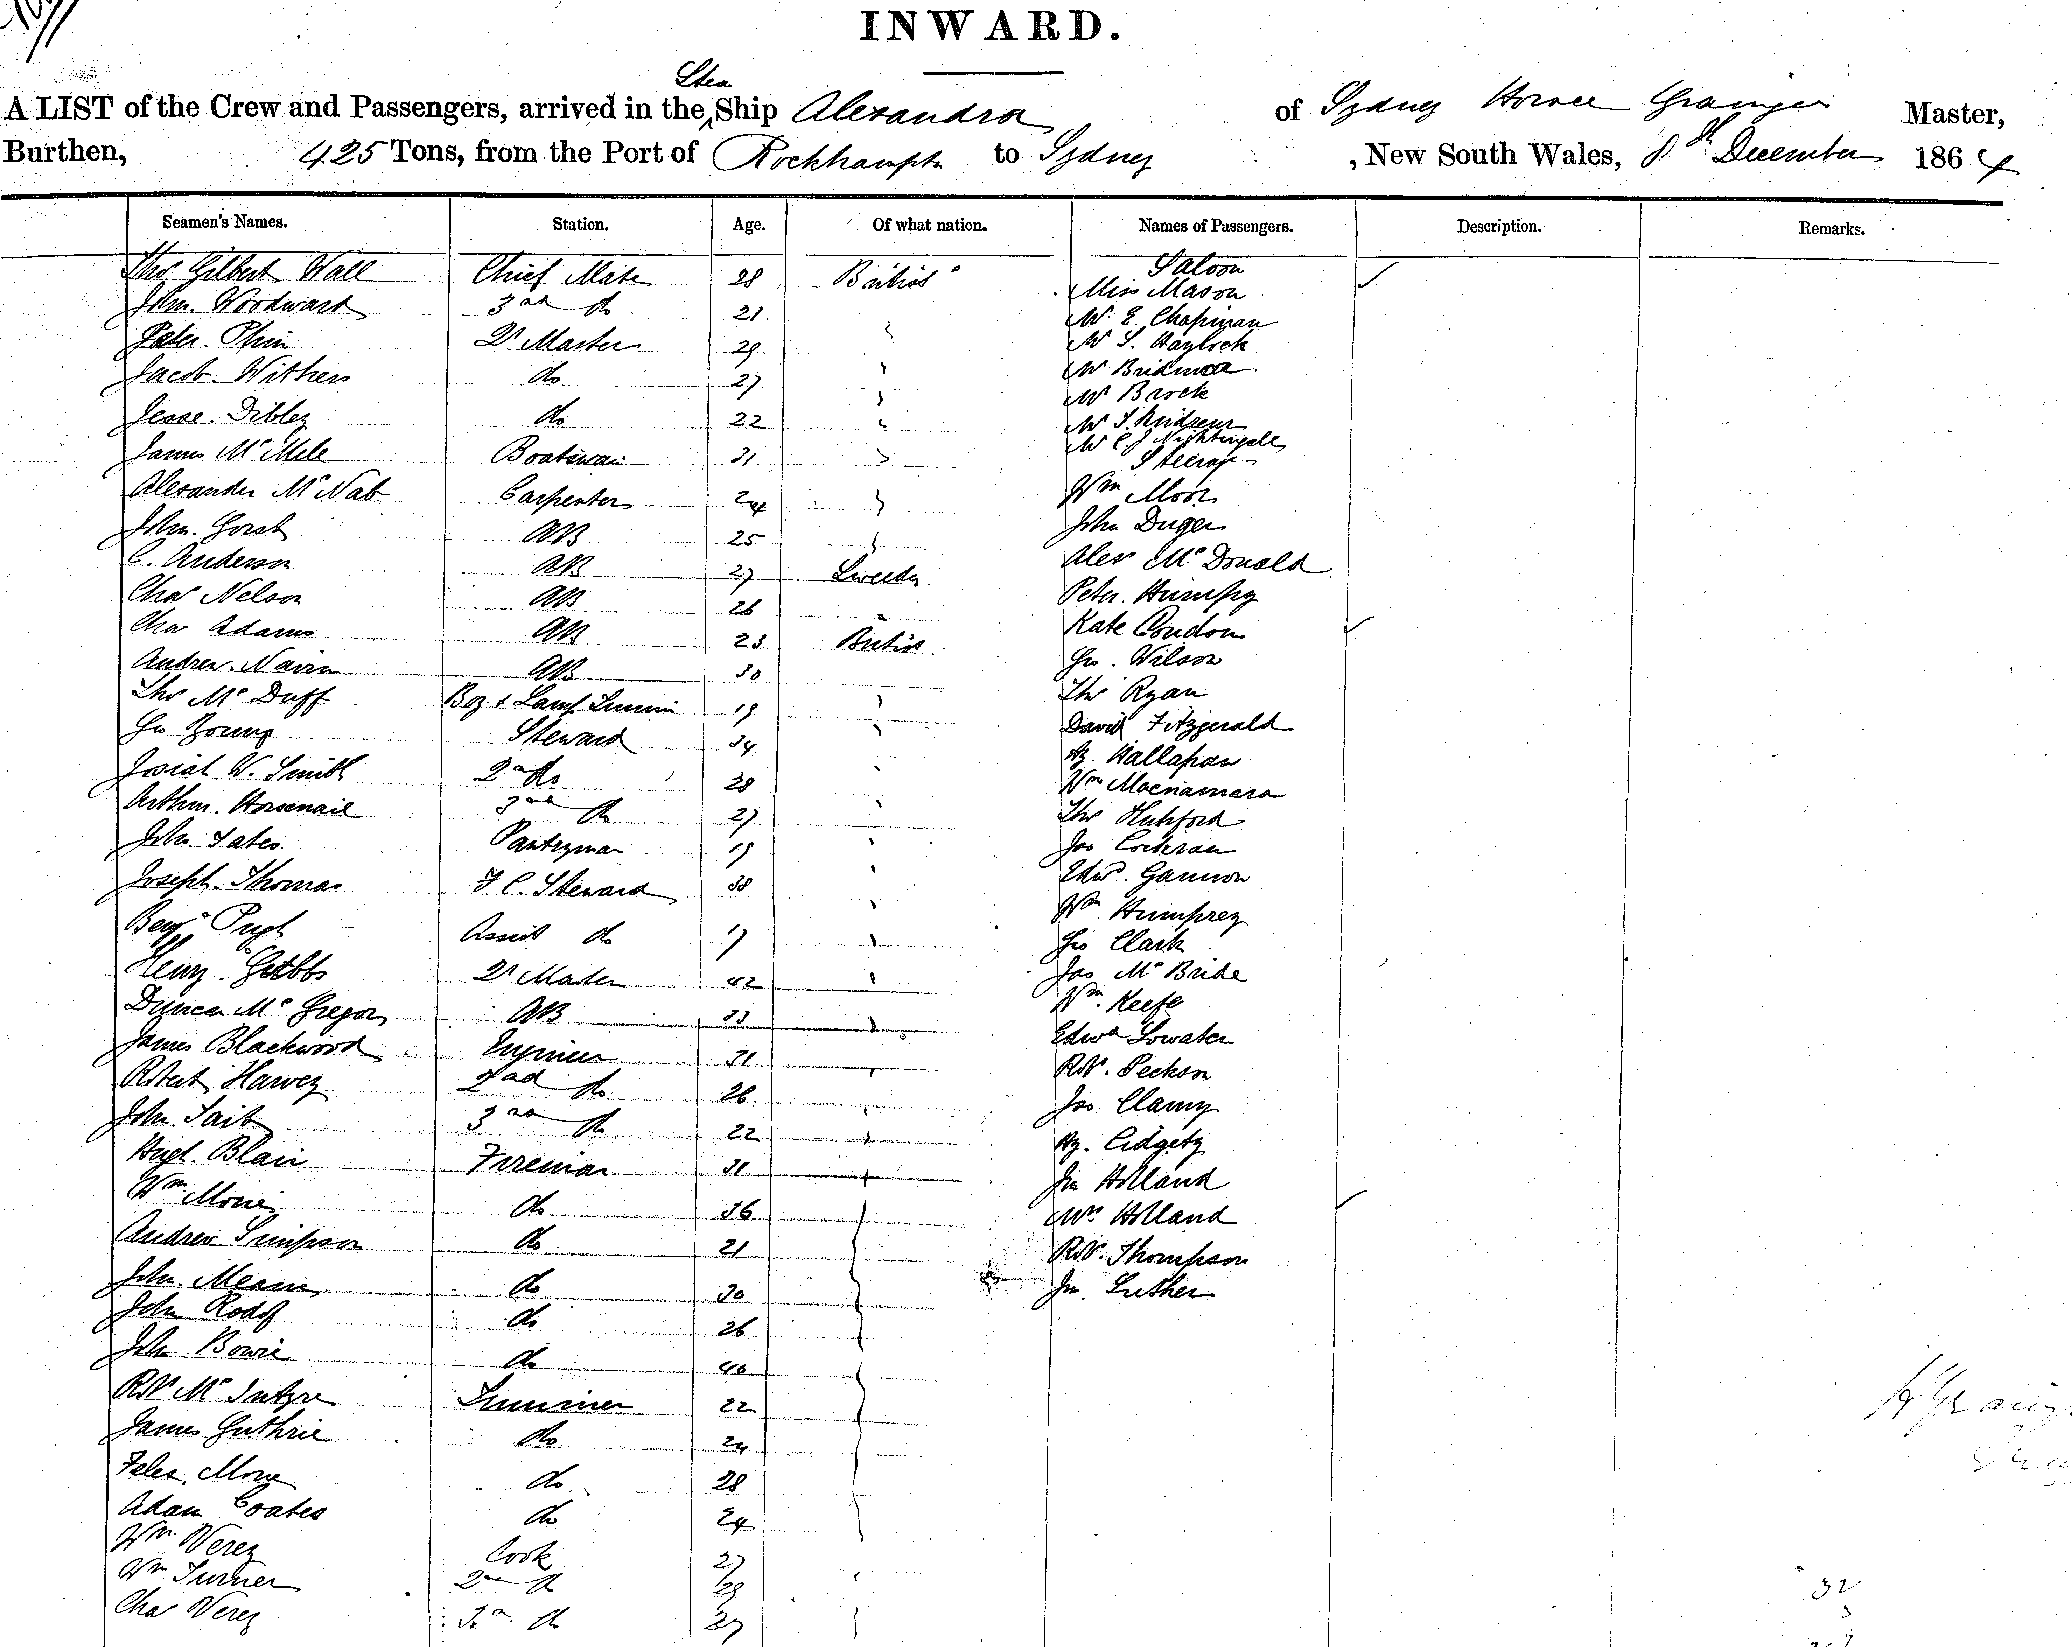 INWARD.
A LIST of the Crew and Passengers, arrived in the Stea Ship Alexandra of Sydney Horace Grainger Master,
Burthen, 425 Tons, from the Port of Rockhampton to Sydney , New South Wales, 8th December 1864
Seamen's Names. Station. Age. Of what nation. Names of Passengers. Description. Remarks.
Saloon
Thos Gilbert Wall Chief Mate 28 British Miss Mason
John Woodward 3rd do 21 Mr E. Chapman
Peter Phin Qr Master 29 Mr S. Haylock
Jacob Withers do 27 Mr Bridmoa
Mr Brock
Jesse Dibley do 22 Mr
Mr C J Nightingale
James Mc Mele Boatswain 31 Steerage
Alexander McNab Carpenter 24 Wm Moor
John Gorst AB 25 John Duger
C. Anderson AB 27 Sweeden Alex McDonald
Chas Nelson AB 26 Peter Humfry
Chas Adams AB 23 British Kate Condon
Andrew Navin AB 30 Geo. Wilson
Thos McDuff Boy & Lamp Trimmer 19 Thos Ryan
Geo Young Steward 34 David Fitzgerald
Hy Hallahan
Josiah W. Smith 2nd do 28 Wm Macnamara
Arthur Horsenail 3rd do 27 Thos Huhford
John Yates Pantryman 19 Jas Cochran
Joseph Thomas F C Steward 38 Edwd Gannon
Wm Humfrey
Benjn Pugh Assist do 17 Geo Clark
Henry Gibbs Qr Master 42 Jas McBride
Wm Keefe
Duncan McGregor AB 33 Edwd Lowater
James Blackwood Engineer 31 Robt. Peckson
Robert Harvey 2nd do 26 Jas Clamy
John Tait 3rd do 22 Hy. Cidgety
Hugh Blair Fireman 31 Jno Holland
Wm do 36 Mrs Holland
Andrew Simpson do 21 Robt. Thompson
John Mearns do 30 Jno Luther
John do 26
John Bowie do 40
Robt McIntyre Trimmer 22
James Guthrie do 24
do 28
Adam Coates do 24
Wm Verey Cook 27
Wm Turner 2nd do 23
Chas Verey 3rd do 27
H Grainger
32
3